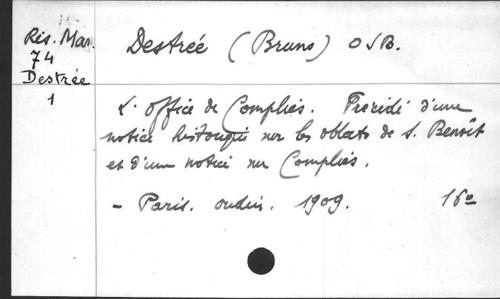 Rés. Mar.
74
Destrée
1
Destrée (Bruno) OSB.
L'office de Complies. Précédé d'une
notice historique sur les oblats de S. Benoît
et d'une notice sur Complies.
- Paris. Oudin. 1909. 16º